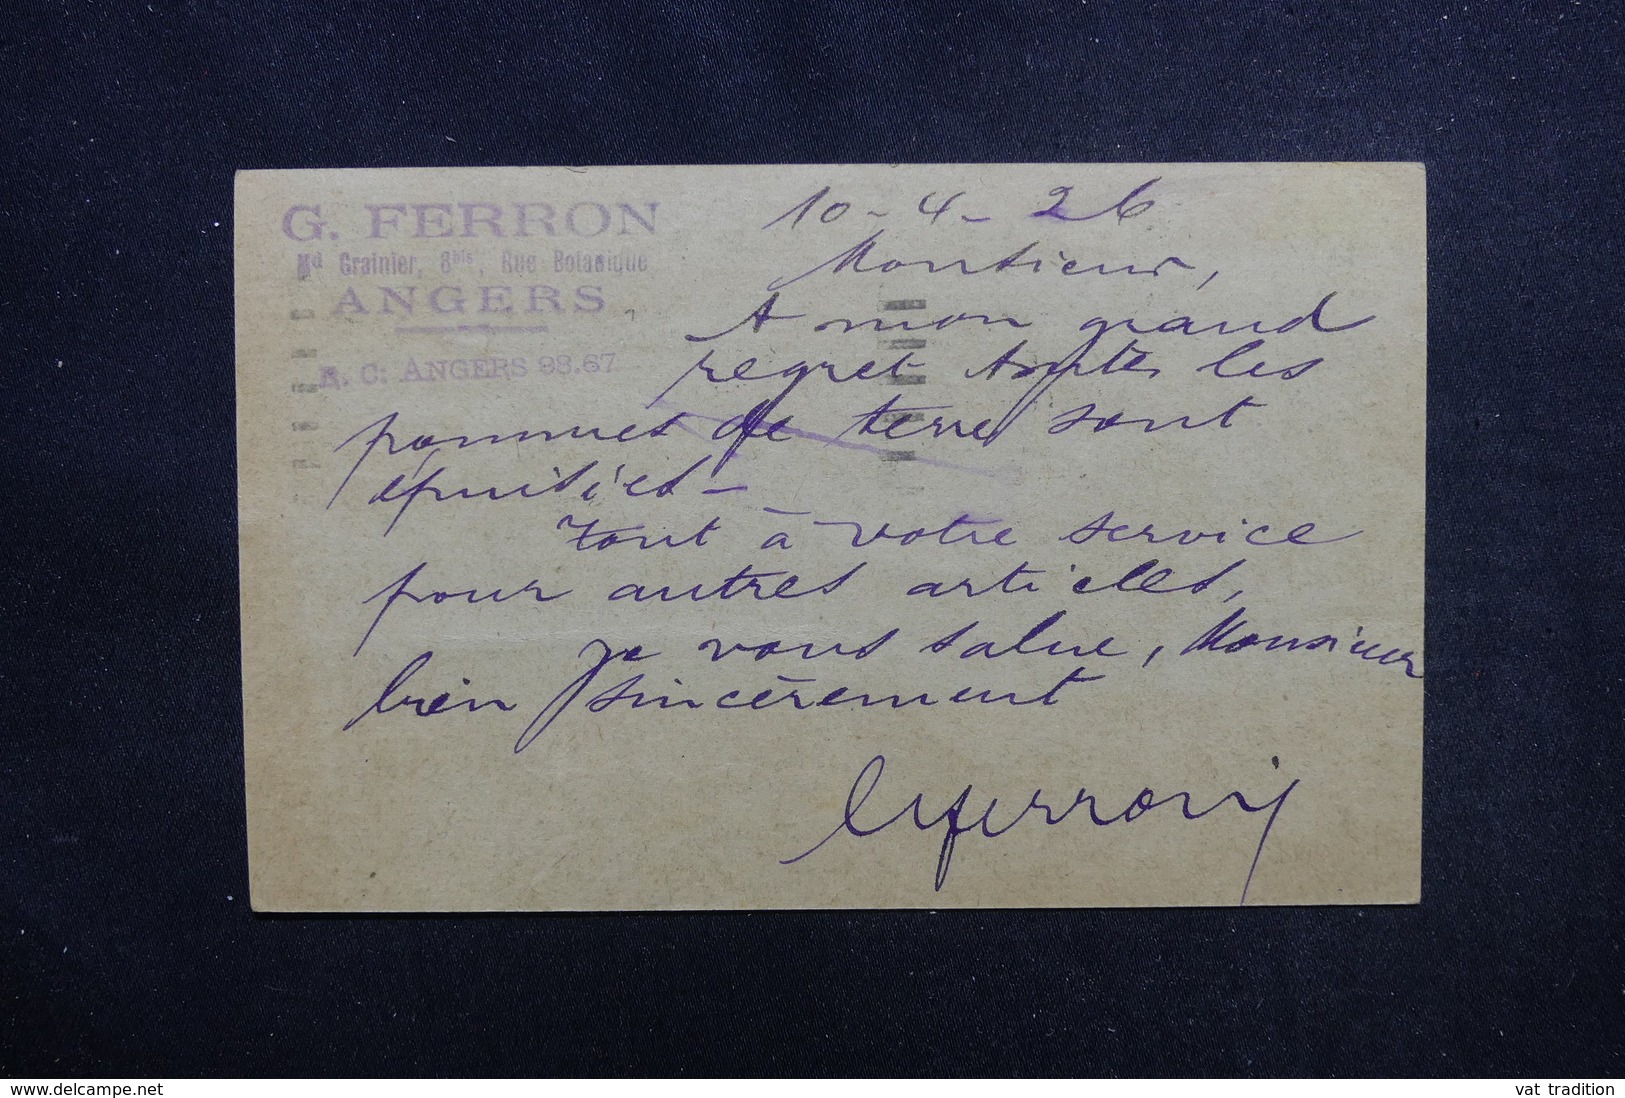 G. FERRON
Md Grainier, 8bis, Rue Botanique
ANGERS
R. C. ANGERS 98.67
10-4-26
Monsieur,
A mon grand
regret toutes les
pommes de terre sont
épuisées -
Tout à votre service
pour autres articles,
je vous salue, Monsieur
bien sincèrement
GFerron
delcampe.net
vat tradition